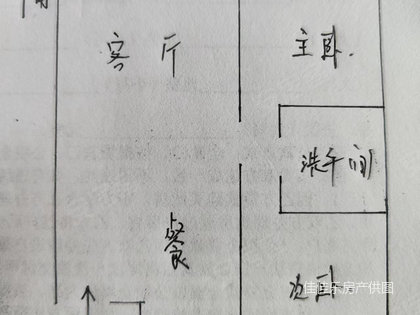 客厅
主卧.
洗手间
餐
次卧
佳佳乐房产供图